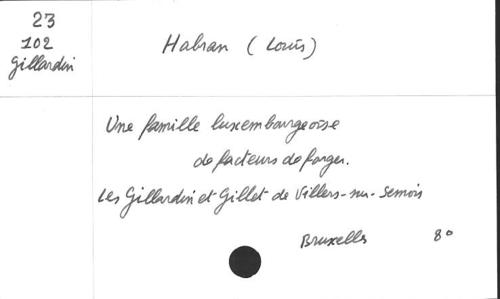 23
102
Gillardin
Habran (Louis)
Une famille luxembourgeoise
de facteurs de forges.
Les Gillardin et Gillet de Villers-sur-Semois
Bruxelles 8°